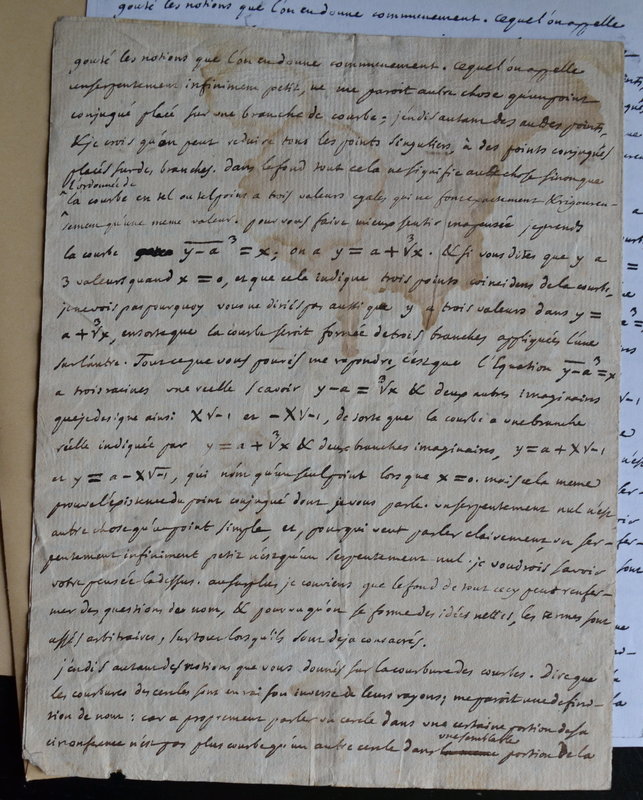 gouté les notions que l'on en donne communement. ce que l'on appelle
gouté les notions que l'on en donne communement. ce que l'on appelle
un serpentement infiniment petit, ne me paroit autre chose qu'un point
conjugué placé sur une branche de courbe; j'en dis autant des au des points,
& je crois qu'on peut reduire tous les points singuliers, à des points conjugués
placés sur des branches. dans le fond tout cela ne signifie autre chose sinon que
l'ordonnée de
la courbe en tel ou tel point a trois valeurs egales, qui ne font exactement & rigoureu-
sement qu'une meme valeur. pour vous faire mieux sentir ma pensée je prends
la courbe y-a ³ = x; on a y = a + ³√x. & si vous dites que y a
3 valeurs quand x = 0, et que cela indique trois points coincidens de la courbe,
je ne vois pas pourquoy vous ne diriés pas aussi que y a trois valeurs dans y =
a + ³√x, en sorte que la courbe seroit formée de trois branches appliquées l'une
sur l'autre. Tout ce que vous pourés me repondre, c'est que l'Equation y-a ³ = x
a trois racines une réelle scavoir y-a = ³√x & deux autres imaginaires
que je designe ainsi X√-1 et -X√-1, de sorte que la courbe a une branche
réelle indiquée par y = a + ³√x & deux branches imaginaires, y = a + X√-1
et y = a - X√-1, qui n'ont qu'un seul point lors que x = 0. mais cela meme
prouve l'existence du point conjugué dont je vous parle. un serpentement nul n'est
autre chose qu'un point simple, et, pour qui veut parler clairement, un ser-
pentement infiniment petit n'est qu'un serpentement nul. je voudrois savoir
votre pensée la dessus. au surplus, je conviens que le fond de tout cecy peut renfer-
mer des questions de nom, & pourvu qu'on se forme des idées nettes, les termes sont
assés arbitraires, surtout lors qu'ils sont deja consacrés.
j'en dis autant des notions que vous donnés sur la courbure des courbes. Dire que
les courbures des cercles sont en raison inverse de leurs rayons; me paroit une defini-
tion de nom: car a proprement parler un cercle dans une certaine portion de sa
une semblable
circonference n'est pas plus courbe qu'un autre cercle dans portion de la